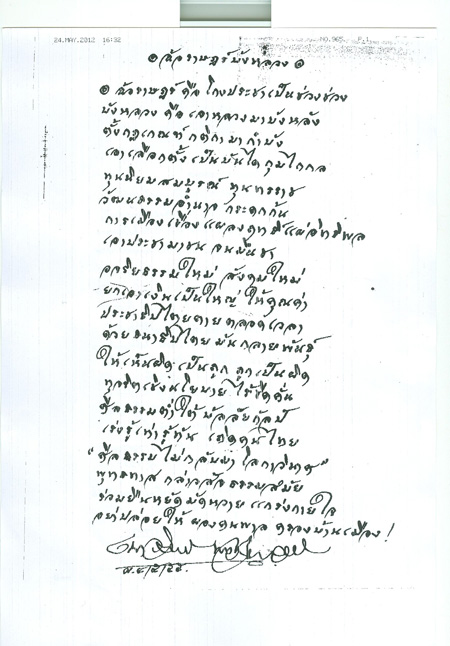 24.MAY.2012 16:32 NO.965 P.1
๏ ฉ้อราษฎร์บังหลวง ๏
๏ ฉ้อราษฎร์ คือ โกงประชาเป็นช่วงช่วง
บังหลวง คือ เอาหลวงมาบังหลัง
ตั้งกฎเกณฑ์ กติกา มากำบัง
เอาเลือกตั้ง เป็นบันได กุมไกกล
ทุนนิยมสมบูรณ์ ทุน
วัฒนธรรมอำนาจ
การเมืองเรื่องแสดง
เอาประชามาชน จน
อารยธรรมใหม่ สังคมใหม่
ยกเอาเงินเป็นใหญ่ ให้คุณค่า
ประชาธิปไตยตายตลอดเวลา
ด้วยธนาธิปไตย มันกลายพันธุ์
ให้เห็นผิด เป็นถูก ถูกเป็นผิด
ทุจริตเชิงนโยบาย ไร้ขีดคั่น
ศีลธรรมต่ำใต้บัลลัยกัลป์
เร่งรู้เท่ารู้ทัน เถิดคนไทย
"ศีลธรรมไม่กลับมา โลกาวินาศ"
พุทธทาส กล่าว สัจธรรมสมัย
ร่วมยืนหยัดมัดหวาย แกร่งกายใจ
อย่าปล่อยให้ ผองคนพาล ครองบ้านเมือง !